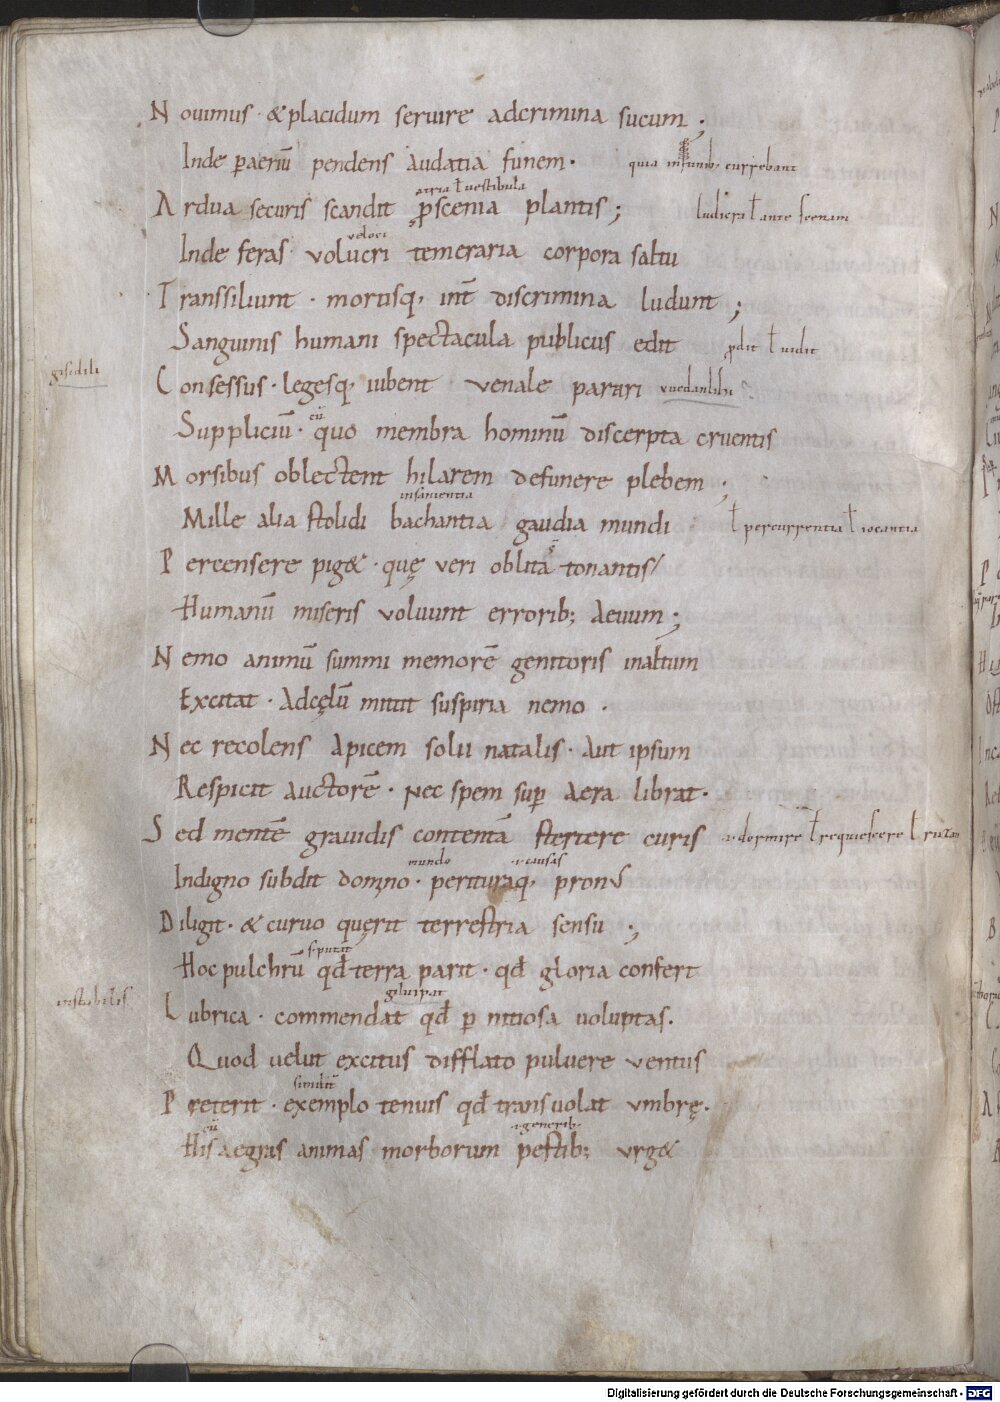 N ouimus · &placidum seruire adcrimina sucum ;
Inde paeriū pendens audatia funem · quia in funib; currebant
atria ł uestibula
A rdua securis scandit pscenia plantis ; ludicra ł ante scenam
ueloci
Inde feras uolucri temeraria corpora saltu
T ranssiliunt · mortisq, int̄ discrimina ludunt ;
Sanguinis humani spectacula publicus edit pdit ł uidit
gisidili
C onsessus · legesq, iubent uenale parari
cū
Suppliciū · quo membra hominū discerpta cruentis
M orsibus oblectent hilarem defunere plebem ;
insanientia
Mille alia stolidi bachantia gaudia mundi ł percurrentia ł iocantia
P ercensere pig& · quę ueri oblita tonantis
Humanū miseris uoluunt errorib; aeuum ;
N emo animū summi memorē genitoris inaltum
Excitat · Adcęlū mittit suspiria nemo .
N ec recolens apicem solii natalis · aut ipsum
Respicit auctorē · Nec spem sup aera librat ·
S ed mentē grauidis contentā stertere curis dormire ł requiescere ł
mundo causas
Indigno subdit domno · perituraq, pron
D iligit · & curuo quęrit terrestria sensu ;
putat
Hoc pulchrū qđ terra parit · qđ gloria confert
instabilis
L ubrica · commendat qđ p nitiosa uoluptas .
Quod uelut excitus difflato puluere uentus
P reterit · exemplo tenuis qđ transuolat umbrę .
cū generib;
His aegras animas morborum pestib; urg&
Digitalisierung gefördert durch die Deutsche Forschungsgemeinschaft - DFG